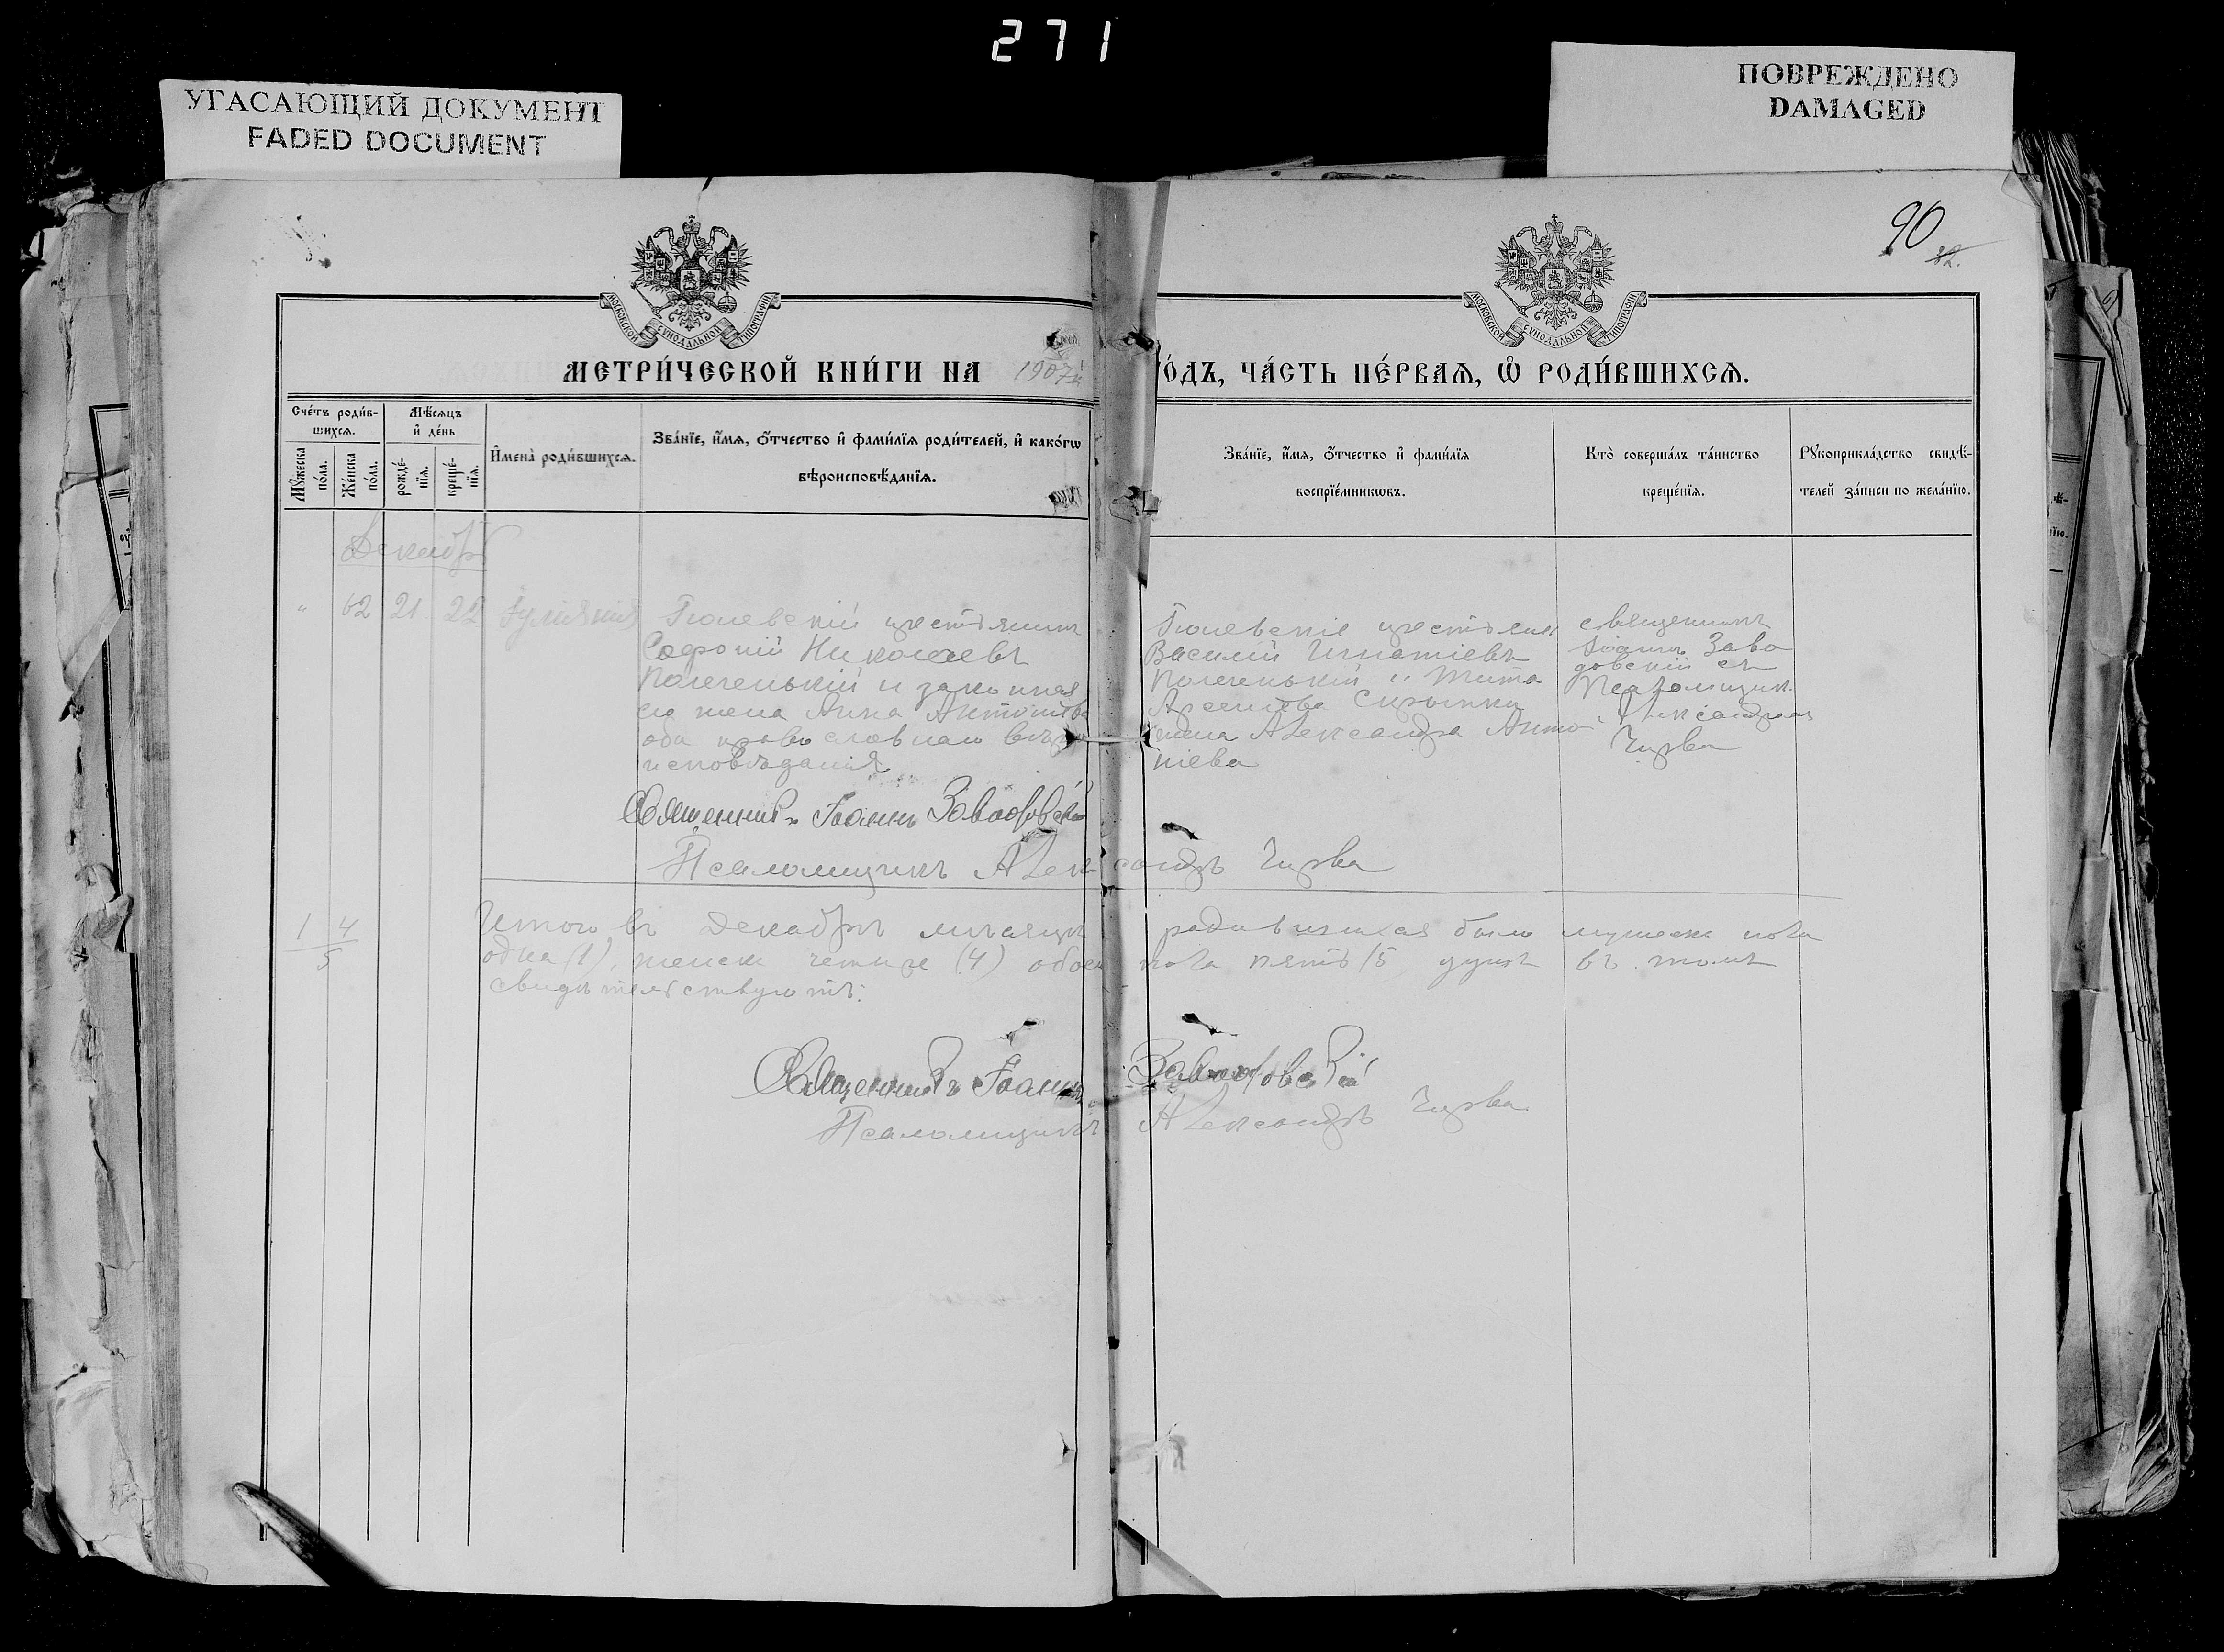 271
УГАСАЮЩИЙ ДОКУМЕНТ
FADED DOCUMENT
ПОВРЕЖДЕНО
DAMAGED
90
82.
МОСКОВСКОЙ СѴНОДАЛЬНОЙ ТИПОГРАФІИ
МОСКОВСКОЙ СѴНОДАЛЬНОЙ ТИПОГРАФІИ
МЕТРИ́ЧЕСКОЙ КНИ́ГИ НА 1907й
ГО́ДЪ, ЧА́СТЬ ПЕ́РВАѦ, Ѡ҆ РОДИ́ВШИХСѦ.
Сче́тъ роди́в-
шихсѧ.
Мѣ́сѧцъ
и҆ де́нь
Мꙋ́жеска
по́ла.
Же́нска
по́ла.
рожде́-
нїѧ.
креще́-
нїѧ.
И҆мена̀ роди́вшихсѧ.
Зва́нїе, и҆́мѧ, ѻ҆́тчество и҆ фами́лїѧ роди́телей, и҆ како́гѡ
вѣроисповѣ́данїѧ.
Зва́нїе, и҆́мѧ, ѻ҆́тчество и҆ фами́лїѧ
воспрїе́мникѡвъ.
Кто̀ соверша́лъ та́инство
креще́нїѧ.
Рꙋкоприкла́дство свидѣ́-
телей за́писи по жела́нїю.
Декабрь
" 62 21 22 Іуліанія
крестьянинъ
Софроній Николаевъ
и законная
его жена Анна Антоніева
оба православнаго вѣро
исповѣданія
Василій Игнатіевъ
и Тита
жена Александра Анто
ніева
священникъ
Іоаннъ Заво
довскій съ
Псаломщик.
Александромъ
Чирва
Священникъ Іоаннъ Заводовскій
Псаломщикъ Александръ Чирва
1 4
5
Итого въ Декабрѣ мѣсяцѣ родившихся было мужеска пола
одна (1), женска четыре (4) обоего пола пять (5 душъ въ томъ
свидѣтельствуютъ:
Священникъ Іоаннъ Заводовскій
Псаломщикъ Александръ Чирва